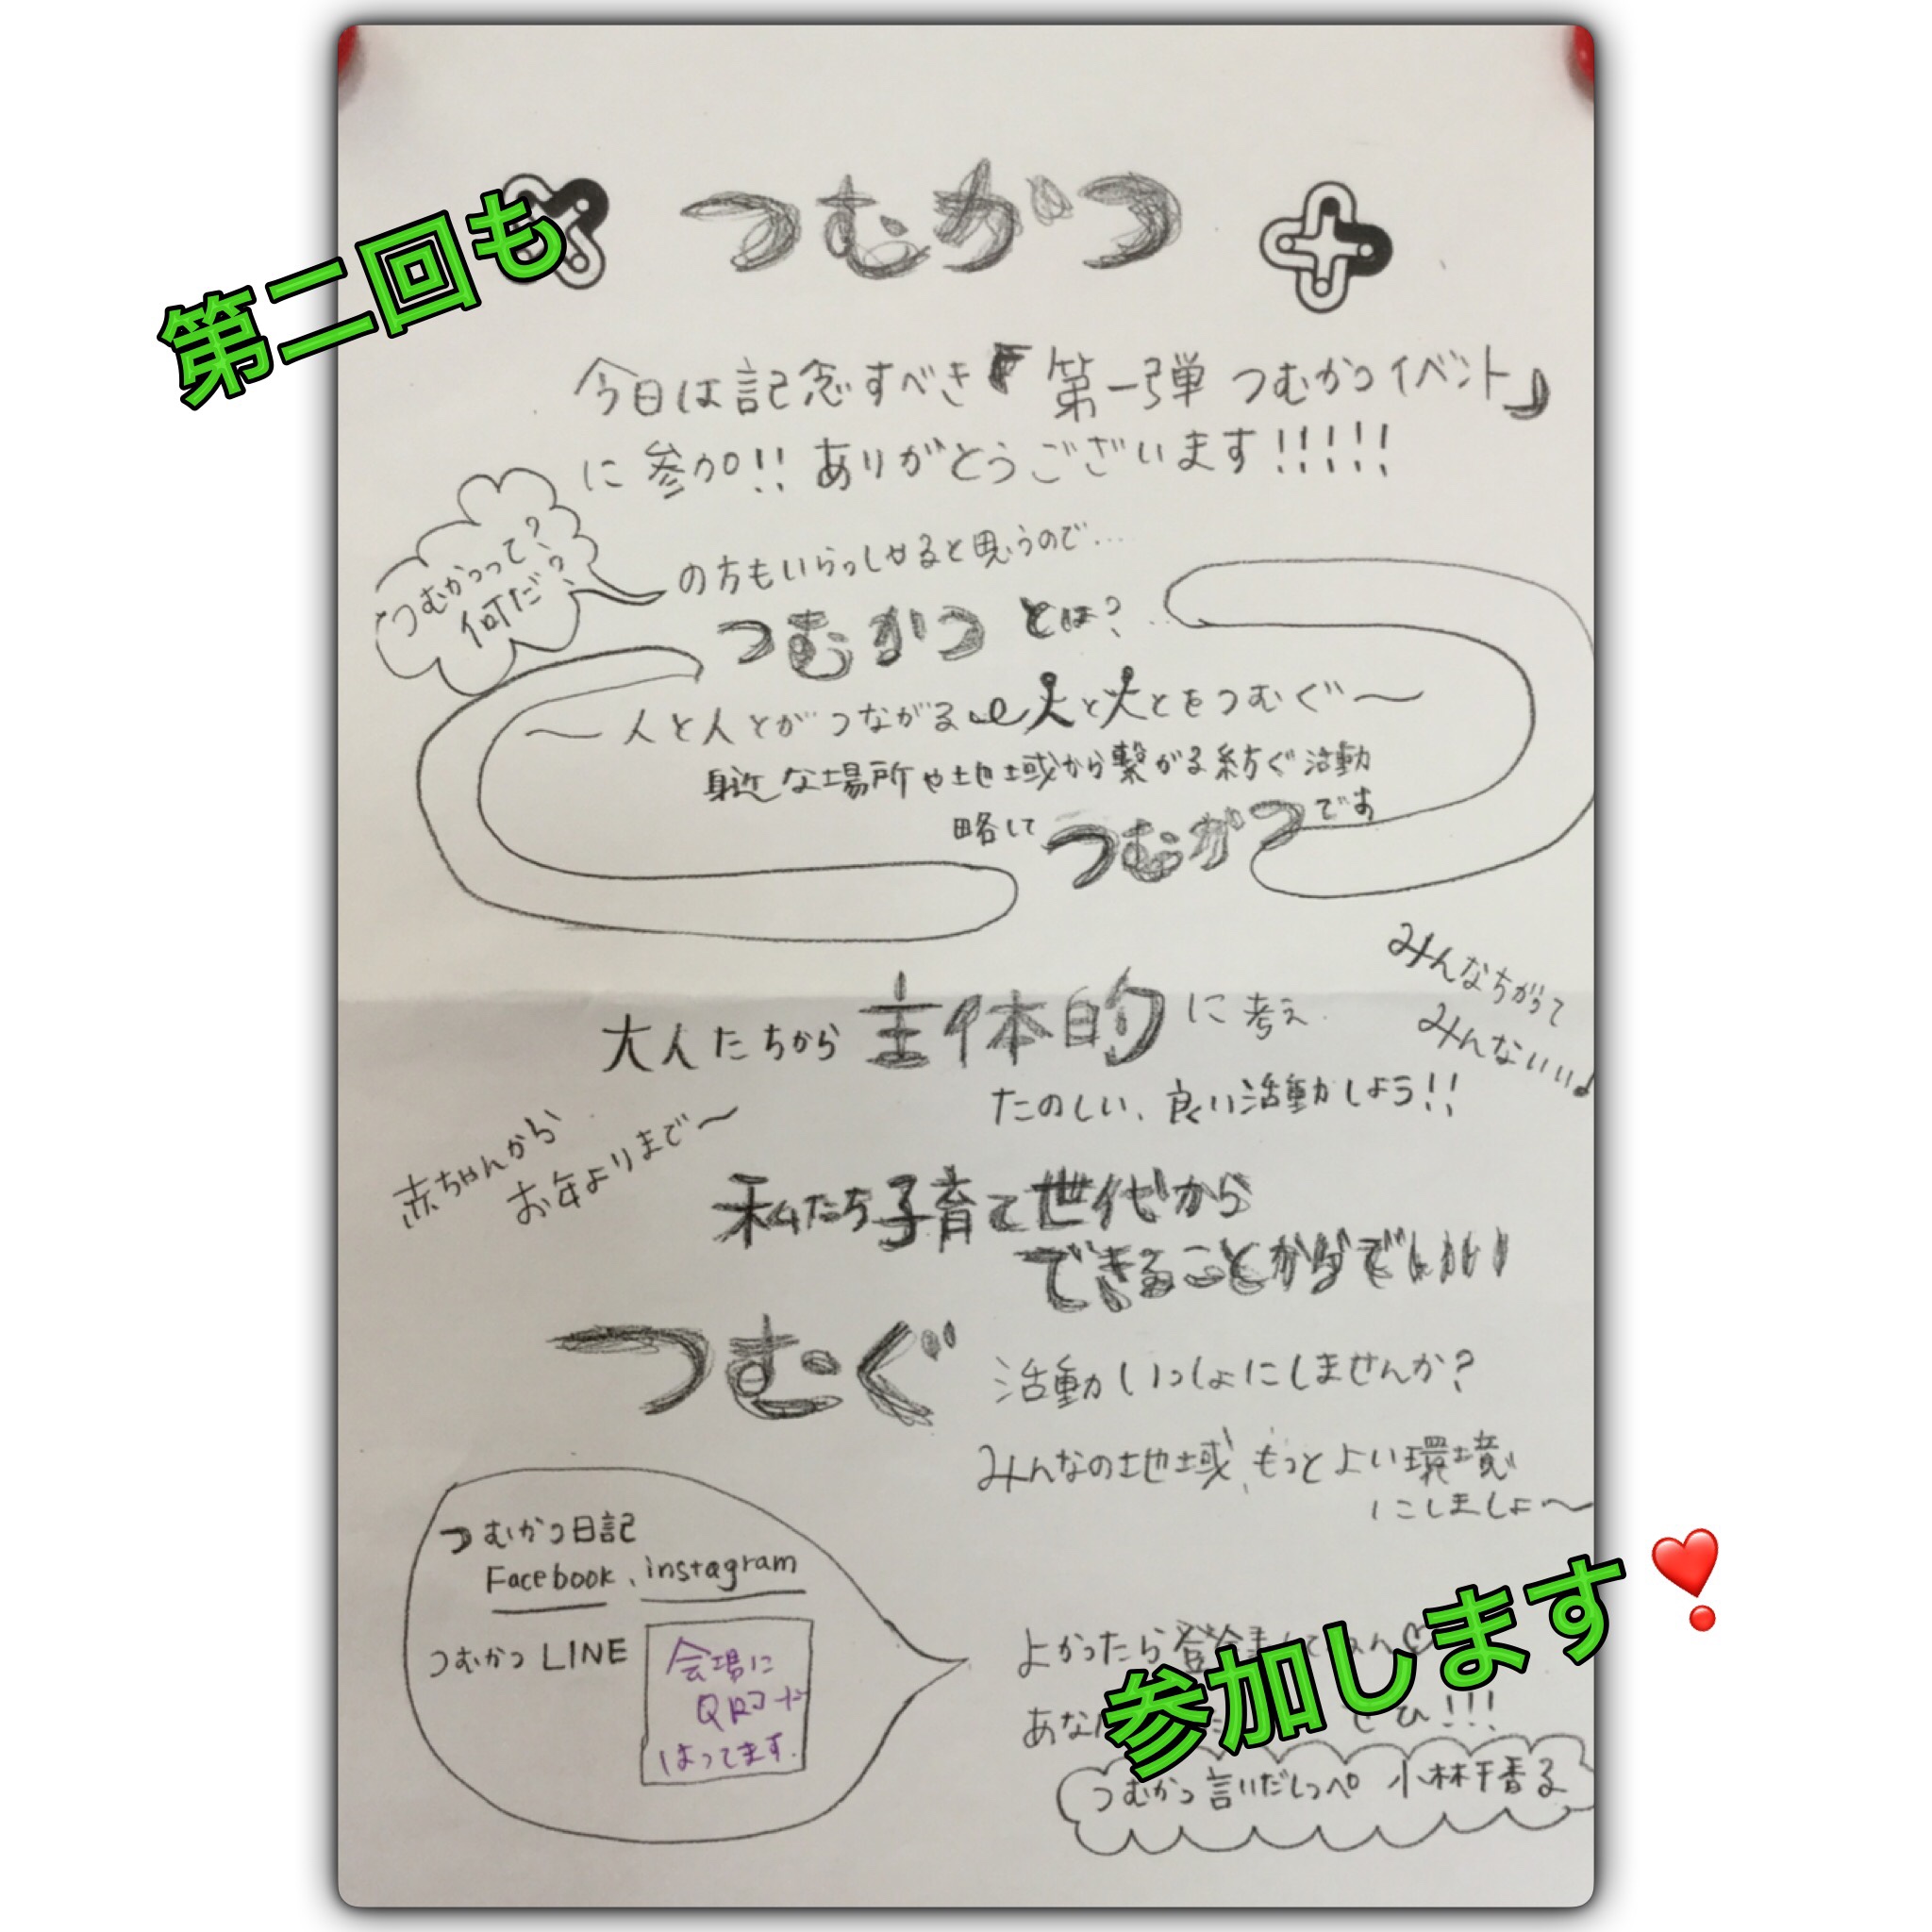 第二回も
つむかつ
今日は記念すべき『第一弾 つむかつイベント』
に参加!! ありがとうございます!!!!!
つむかつって?
何だ?
の方もいらっしゃると思うので…
つむかつ とは?…
〜人と人とがつながる 人と人とをつむぐ〜
身近な場所や地域から繋がる紡ぐ活動
略して つむかつです
みんなちがって
みんないい♪
大人たちから主体的に考え
たのしい、良い活動しよう!!
赤ちゃんから
お年よりまで〜
私たち子育て世代から
できることからでいい
つむぐ 活動いっしょにしませんか?
みんなの地域、もっとよい環境
にしましょ〜
つむかつ日記
Facebook、instagram
つむかつLINE
会場に
QRコード
はってます.
よかったら登録してねん♡
あな ぜひ!!!
参加します❣️
つむかつ言いだしっぺ 小林千香る